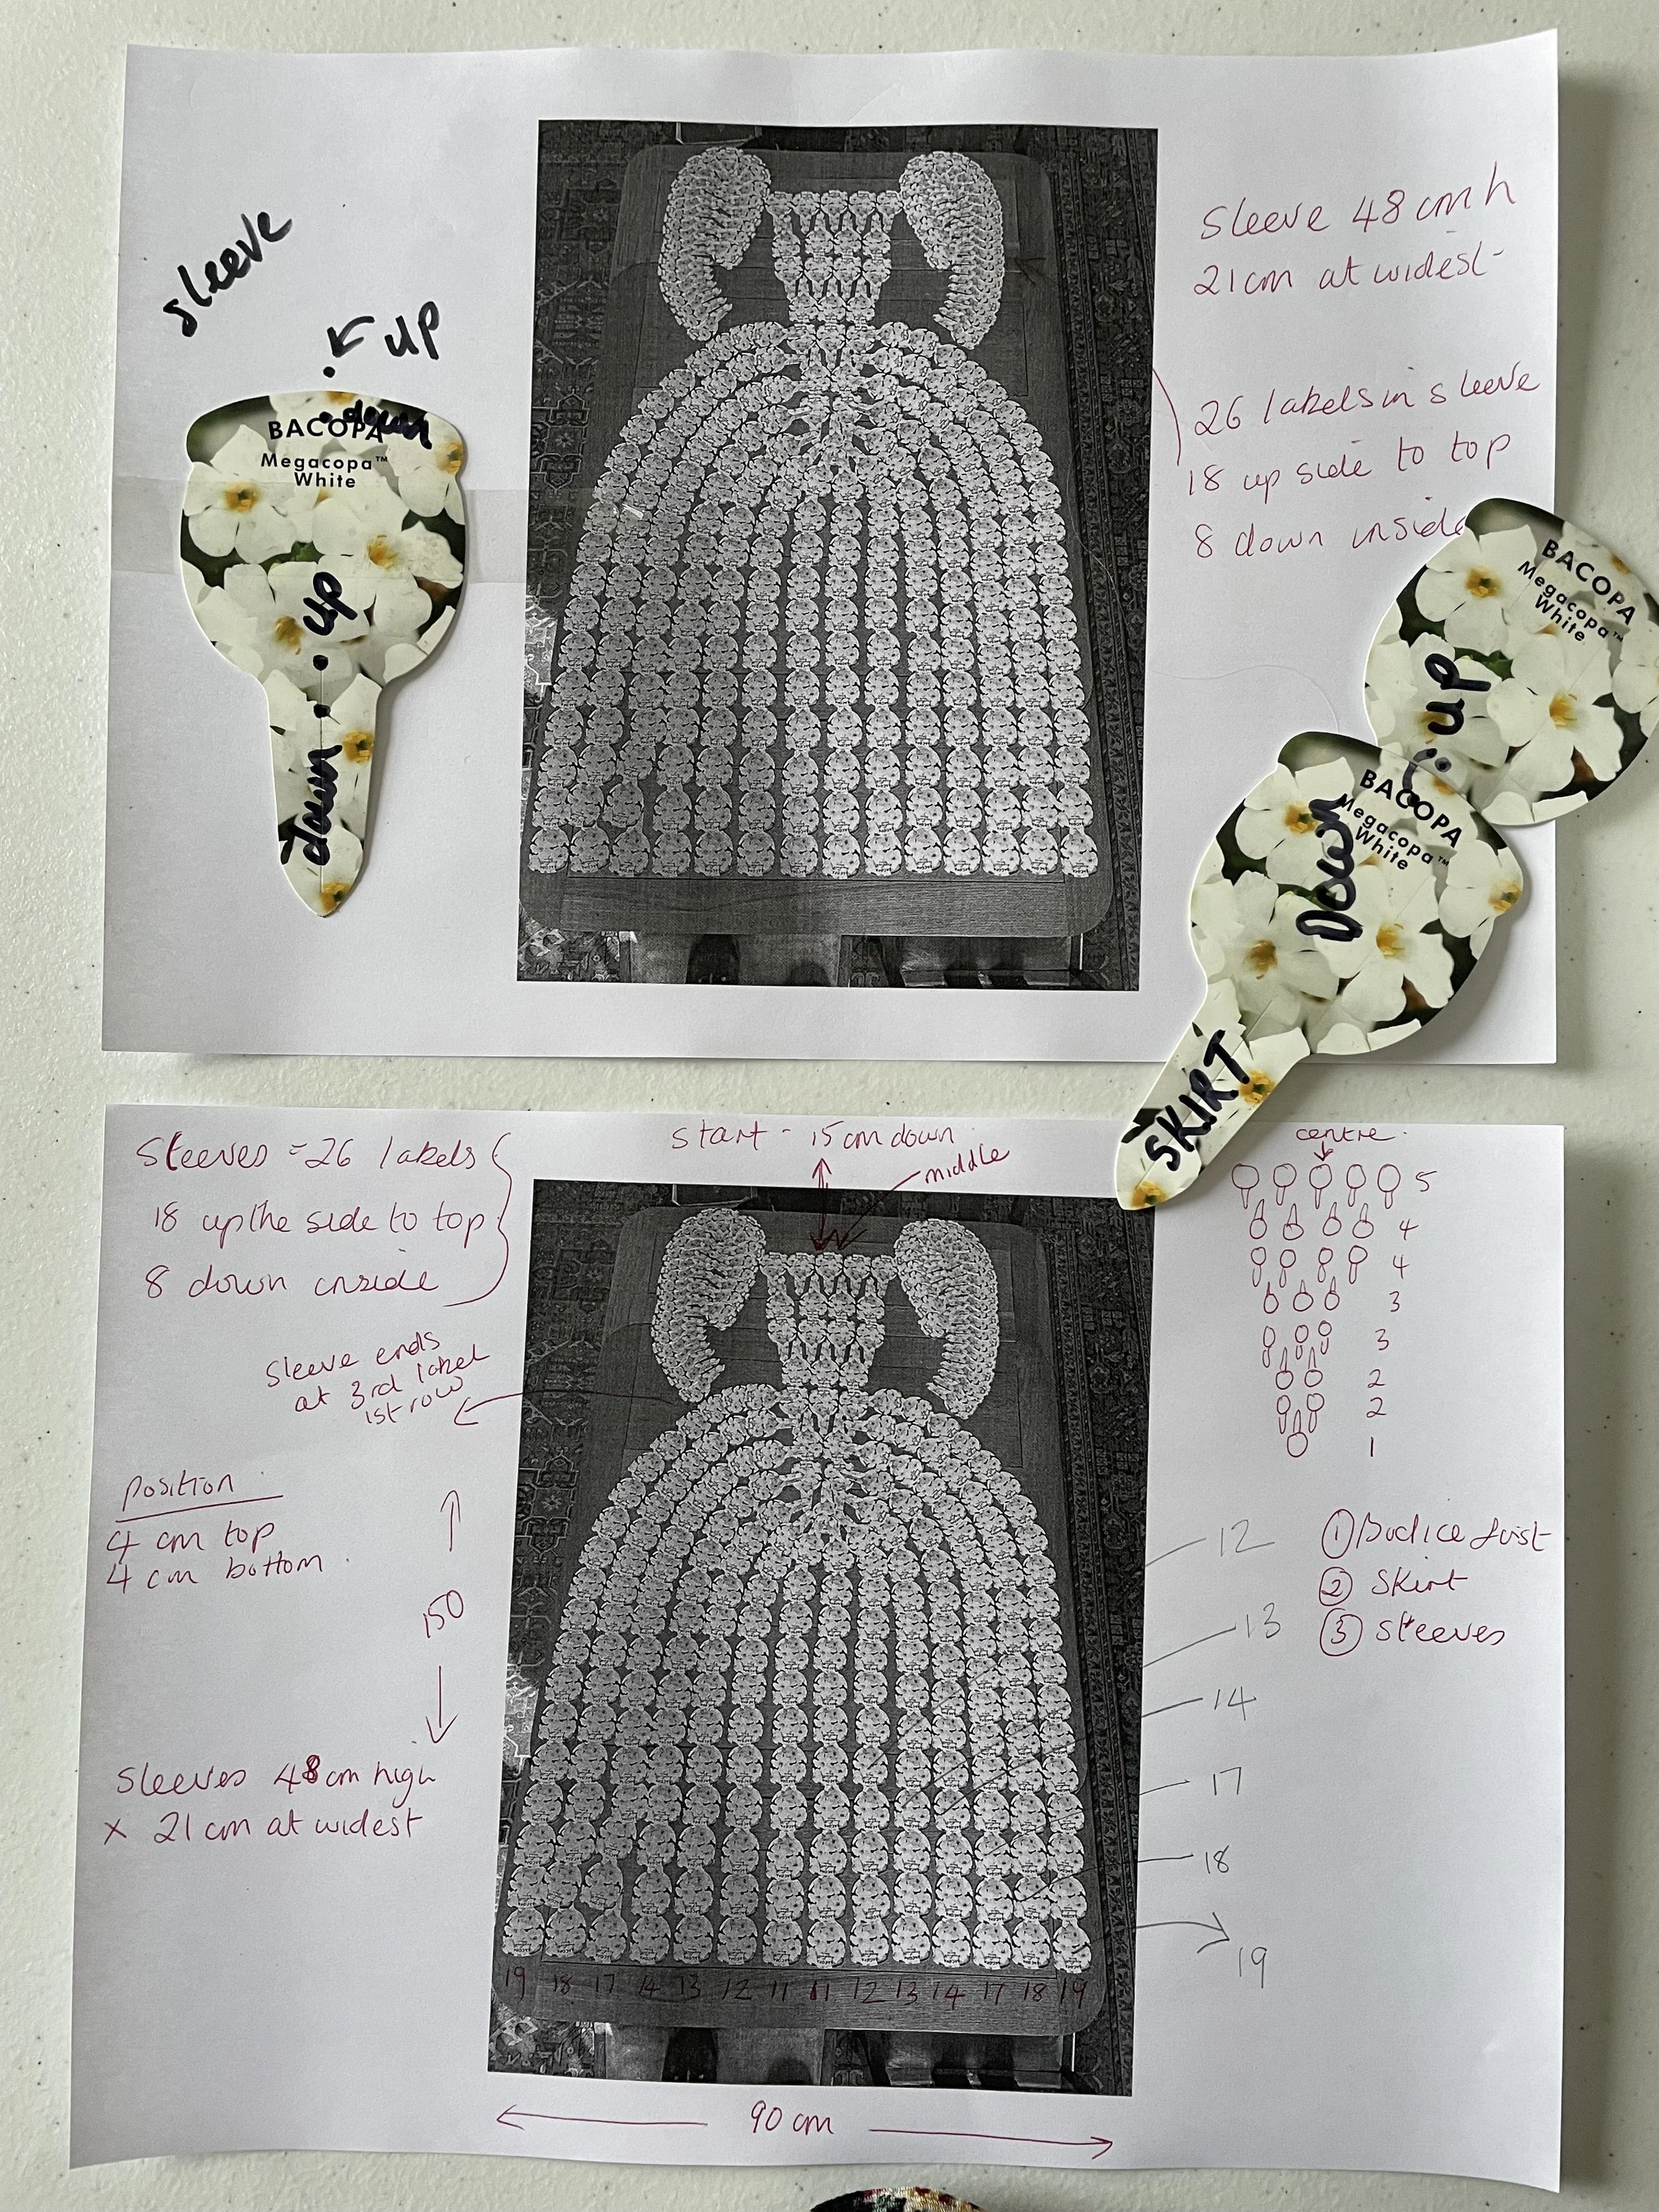 sleeve
up
down
BACOPA
Megacopa™
White
up
down
Sleeve 48 cm h
21cm at widest
26 labels in sleeve
18 up side to top
8 down inside
BACOPA
Megacopa™
White
up
BACOPA
Megacopa™
White
Down
SKIRT
Sleeves = 26 labels
18 up the side to top
8 down inside
start - 15 cm down
middle
centre
5
4
4
3
3
2
2
1
sleeve ends
at 3rd label
1st row
Position
4 cm top
4 cm bottom
150
Sleeves 48 cm high
x 21 cm at widest
12
13
14
17
18
19
① Bodice first
② Skirt
③ Sleeves
19 18 17 14 13 12 11 11 12 13 14 17 18 19
90 cm